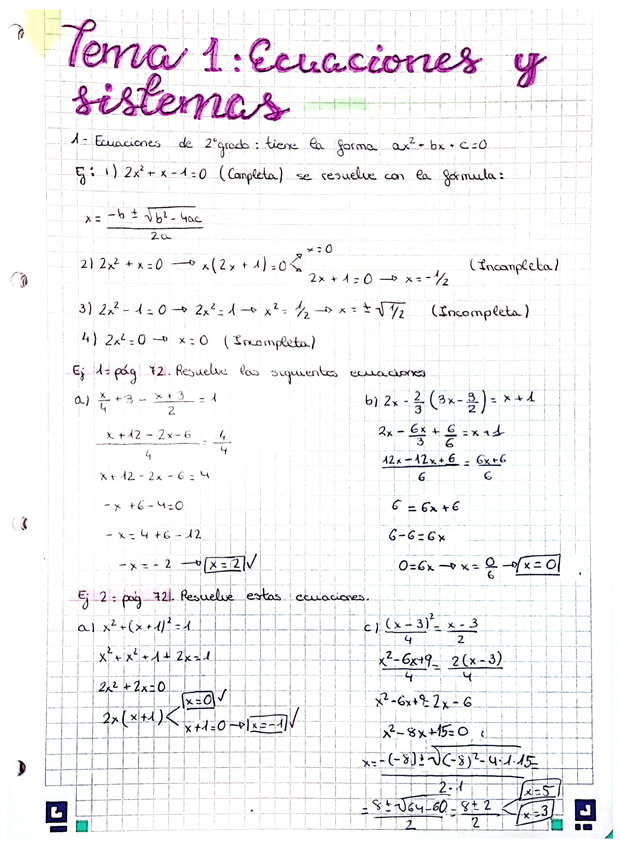 Tema 1: Ecuaciones y
sistemas
1- Ecuaciones de 2º grado: tiene la forma ax² + bx + c = 0
Ej: 1) 2x² + x - 1 = 0 (Completa) se resuelve con la fórmula:
x = (-b ± √(b² - 4ac)) / 2a
2) 2x² + x = 0 → x(2x + 1) = 0 < x = 0
2x + 1 = 0 → x = -1/2 (Incompleta)
3) 2x² - 1 = 0 → 2x² = 1 → x² = 1/2 → x = ± √1/2 (Incompleta)
4) 2x² = 0 → x = 0 (Incompleta)
Ej 1: pág 72. Resuelve las siguientes ecuaciones
a) x/4 + 3 - (x + 3)/2 = 1
(x + 12 - 2x - 6)/4 = 4/4
x + 12 - 2x - 6 = 4
-x + 6 - 4 = 0
-x = 4 + 6 - 12
-x = -2 → x = 2 ✓
b) 2x - 2/3 (3x - 3/2) = x + 1
2x - 6x/3 + 6/6 = x + 1
(12x - 12x + 6)/6 = (6x + 6)/6
6 = 6x + 6
6 - 6 = 6x
0 = 6x → x = 0/6 → x = 0
Ej 2: pág 72. Resuelve estas ecuaciones.
a) x² + (x + 1)² = 1
x² + x² + 1 + 2x = 1
2x² + 2x = 0
2x(x + 1) < x = 0 ✓
x + 1 = 0 → x = -1 ✓
c) (x - 3)²/4 = (x - 3)/2
(x² - 6x + 9)/4 = 2(x - 3)/4
x² - 6x + 9 = 2x - 6
x² - 8x + 15 = 0
x = (-(-8) ± √((-8)² - 4·1·15)) / 2·1 =
= (8 ± √(64 - 60))/2 = (8 ± 2)/2 < x = 5
x = 3